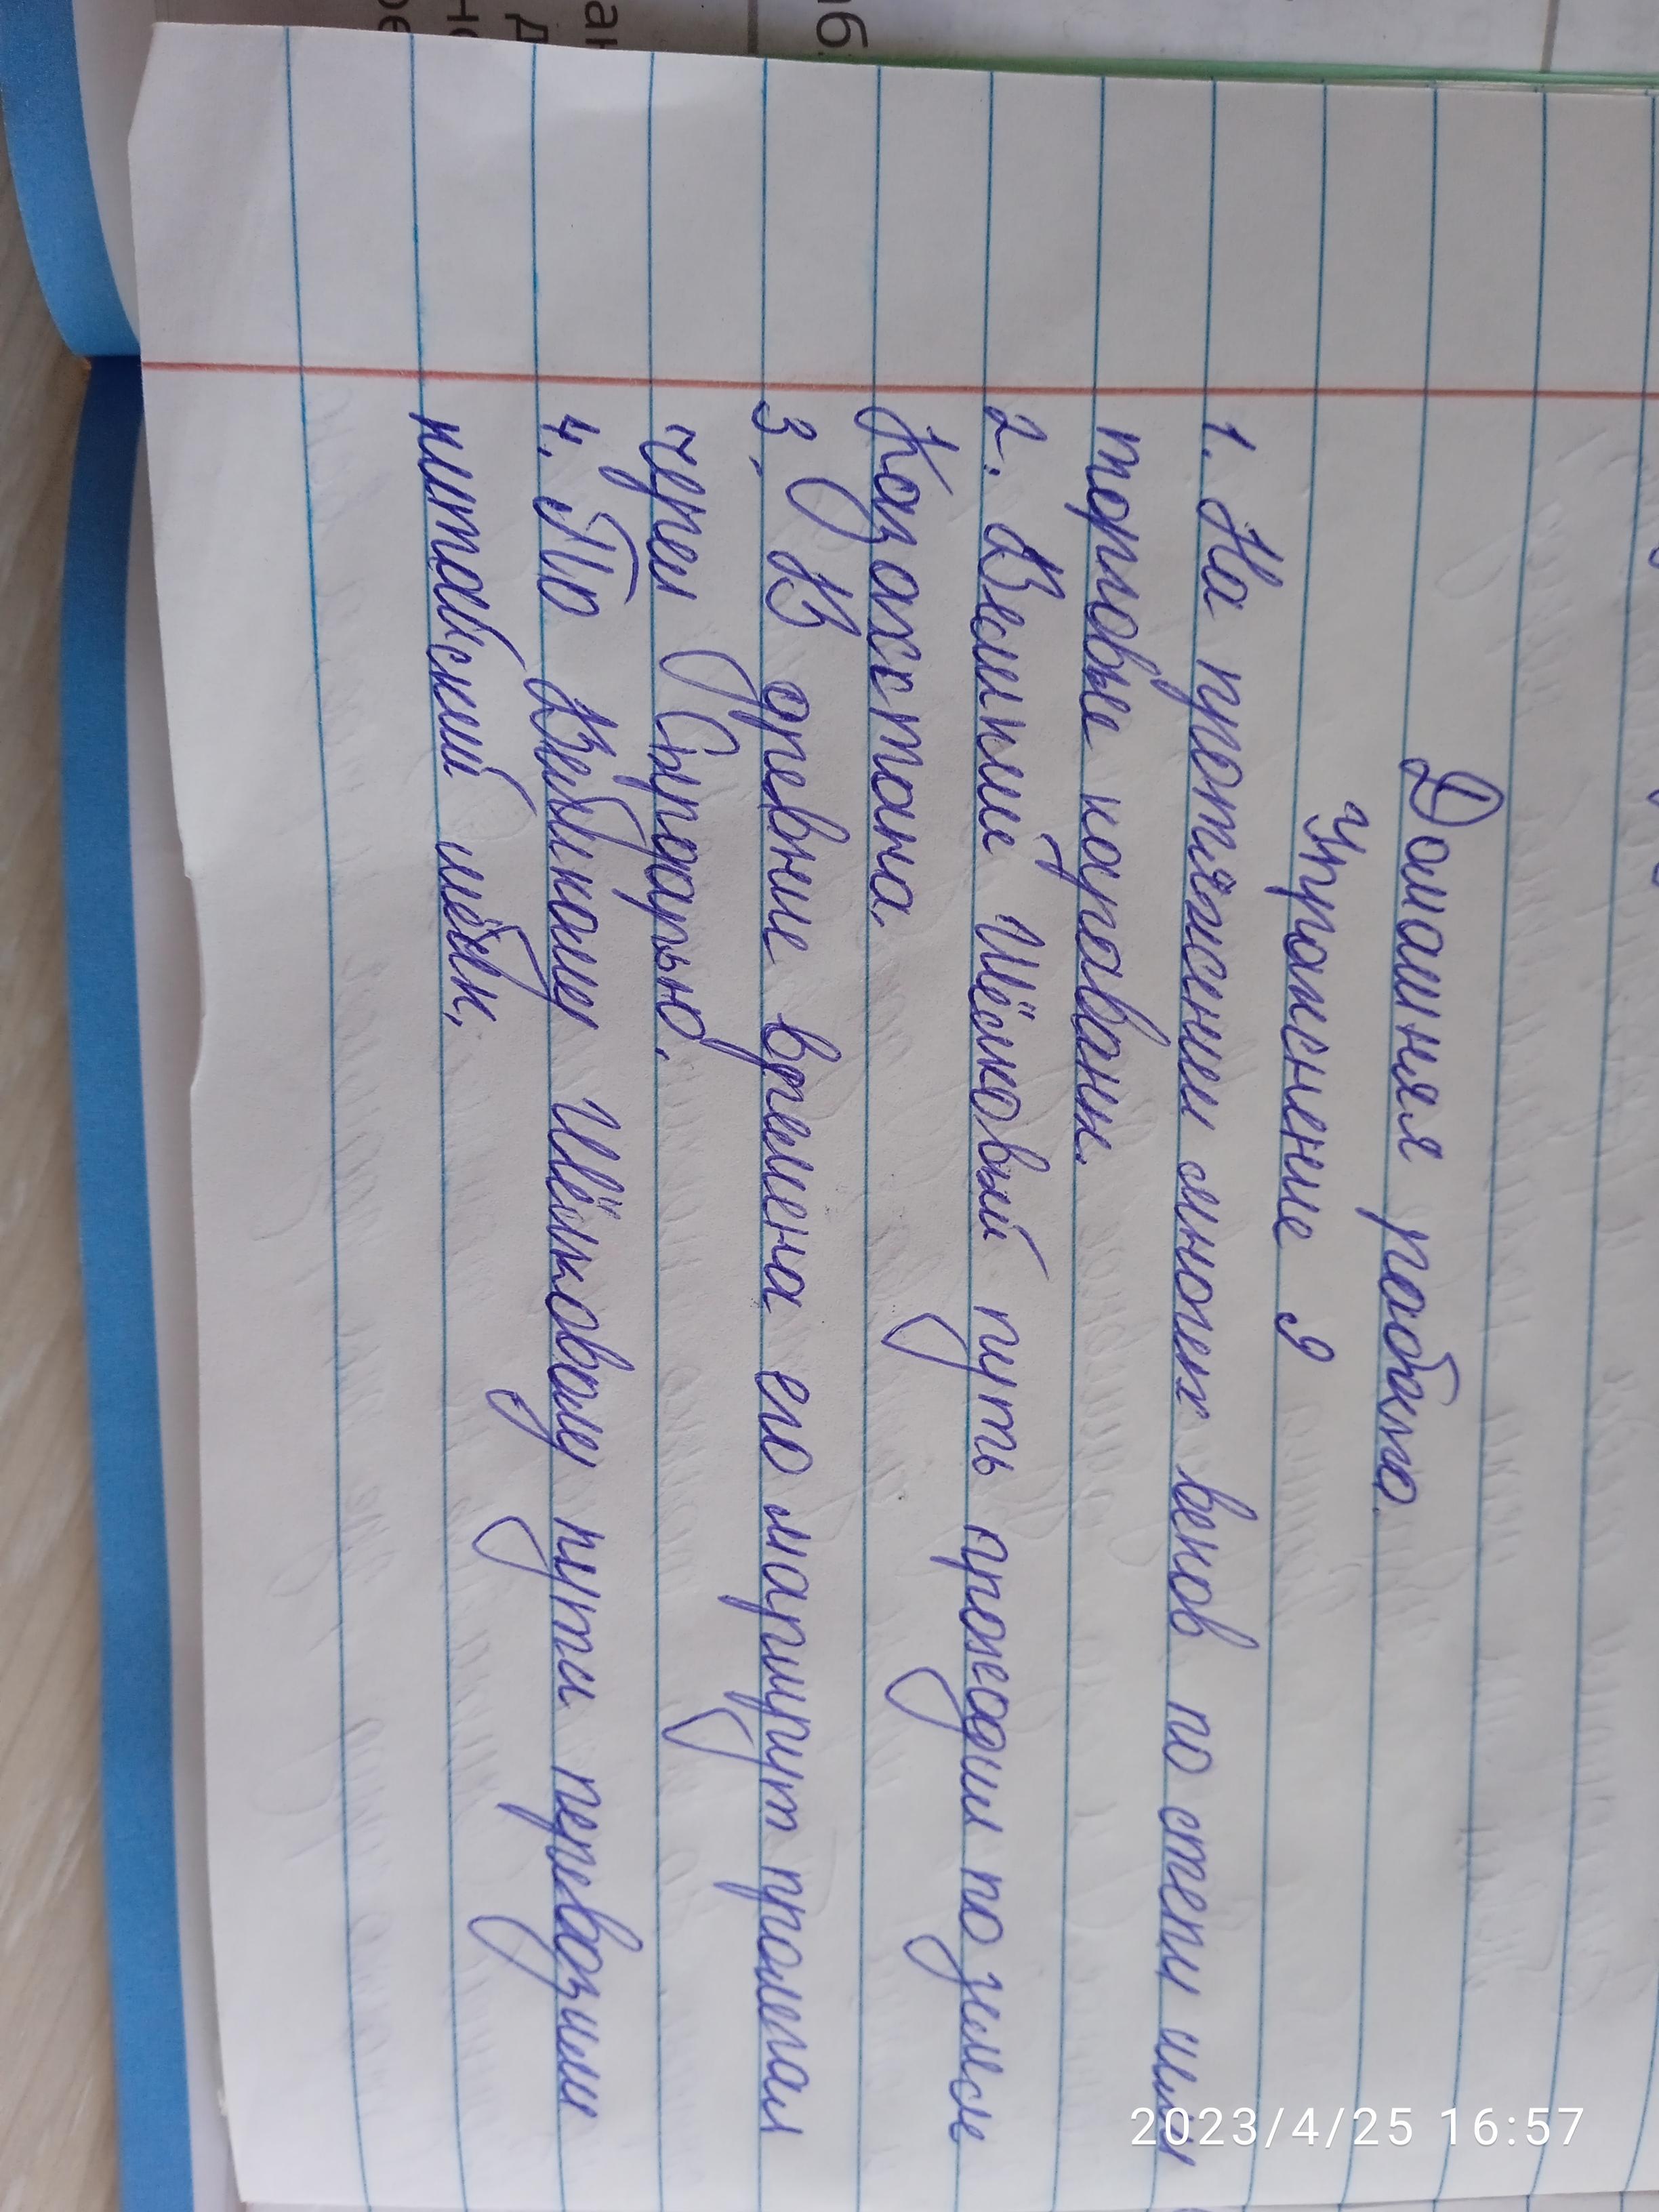 Домашняя работа.
Упражнение 9
1. На протяжении многих веков по степи шли
торговые караваны.
2. Великий Шёлковый путь проходил по земле
Казахстана.
3. В древние времена его маршрут пролегал
через Сырдарью.
4. По Великому Шёлковому пути перевозили
китайский шёлк.
2023/4/25 16:57